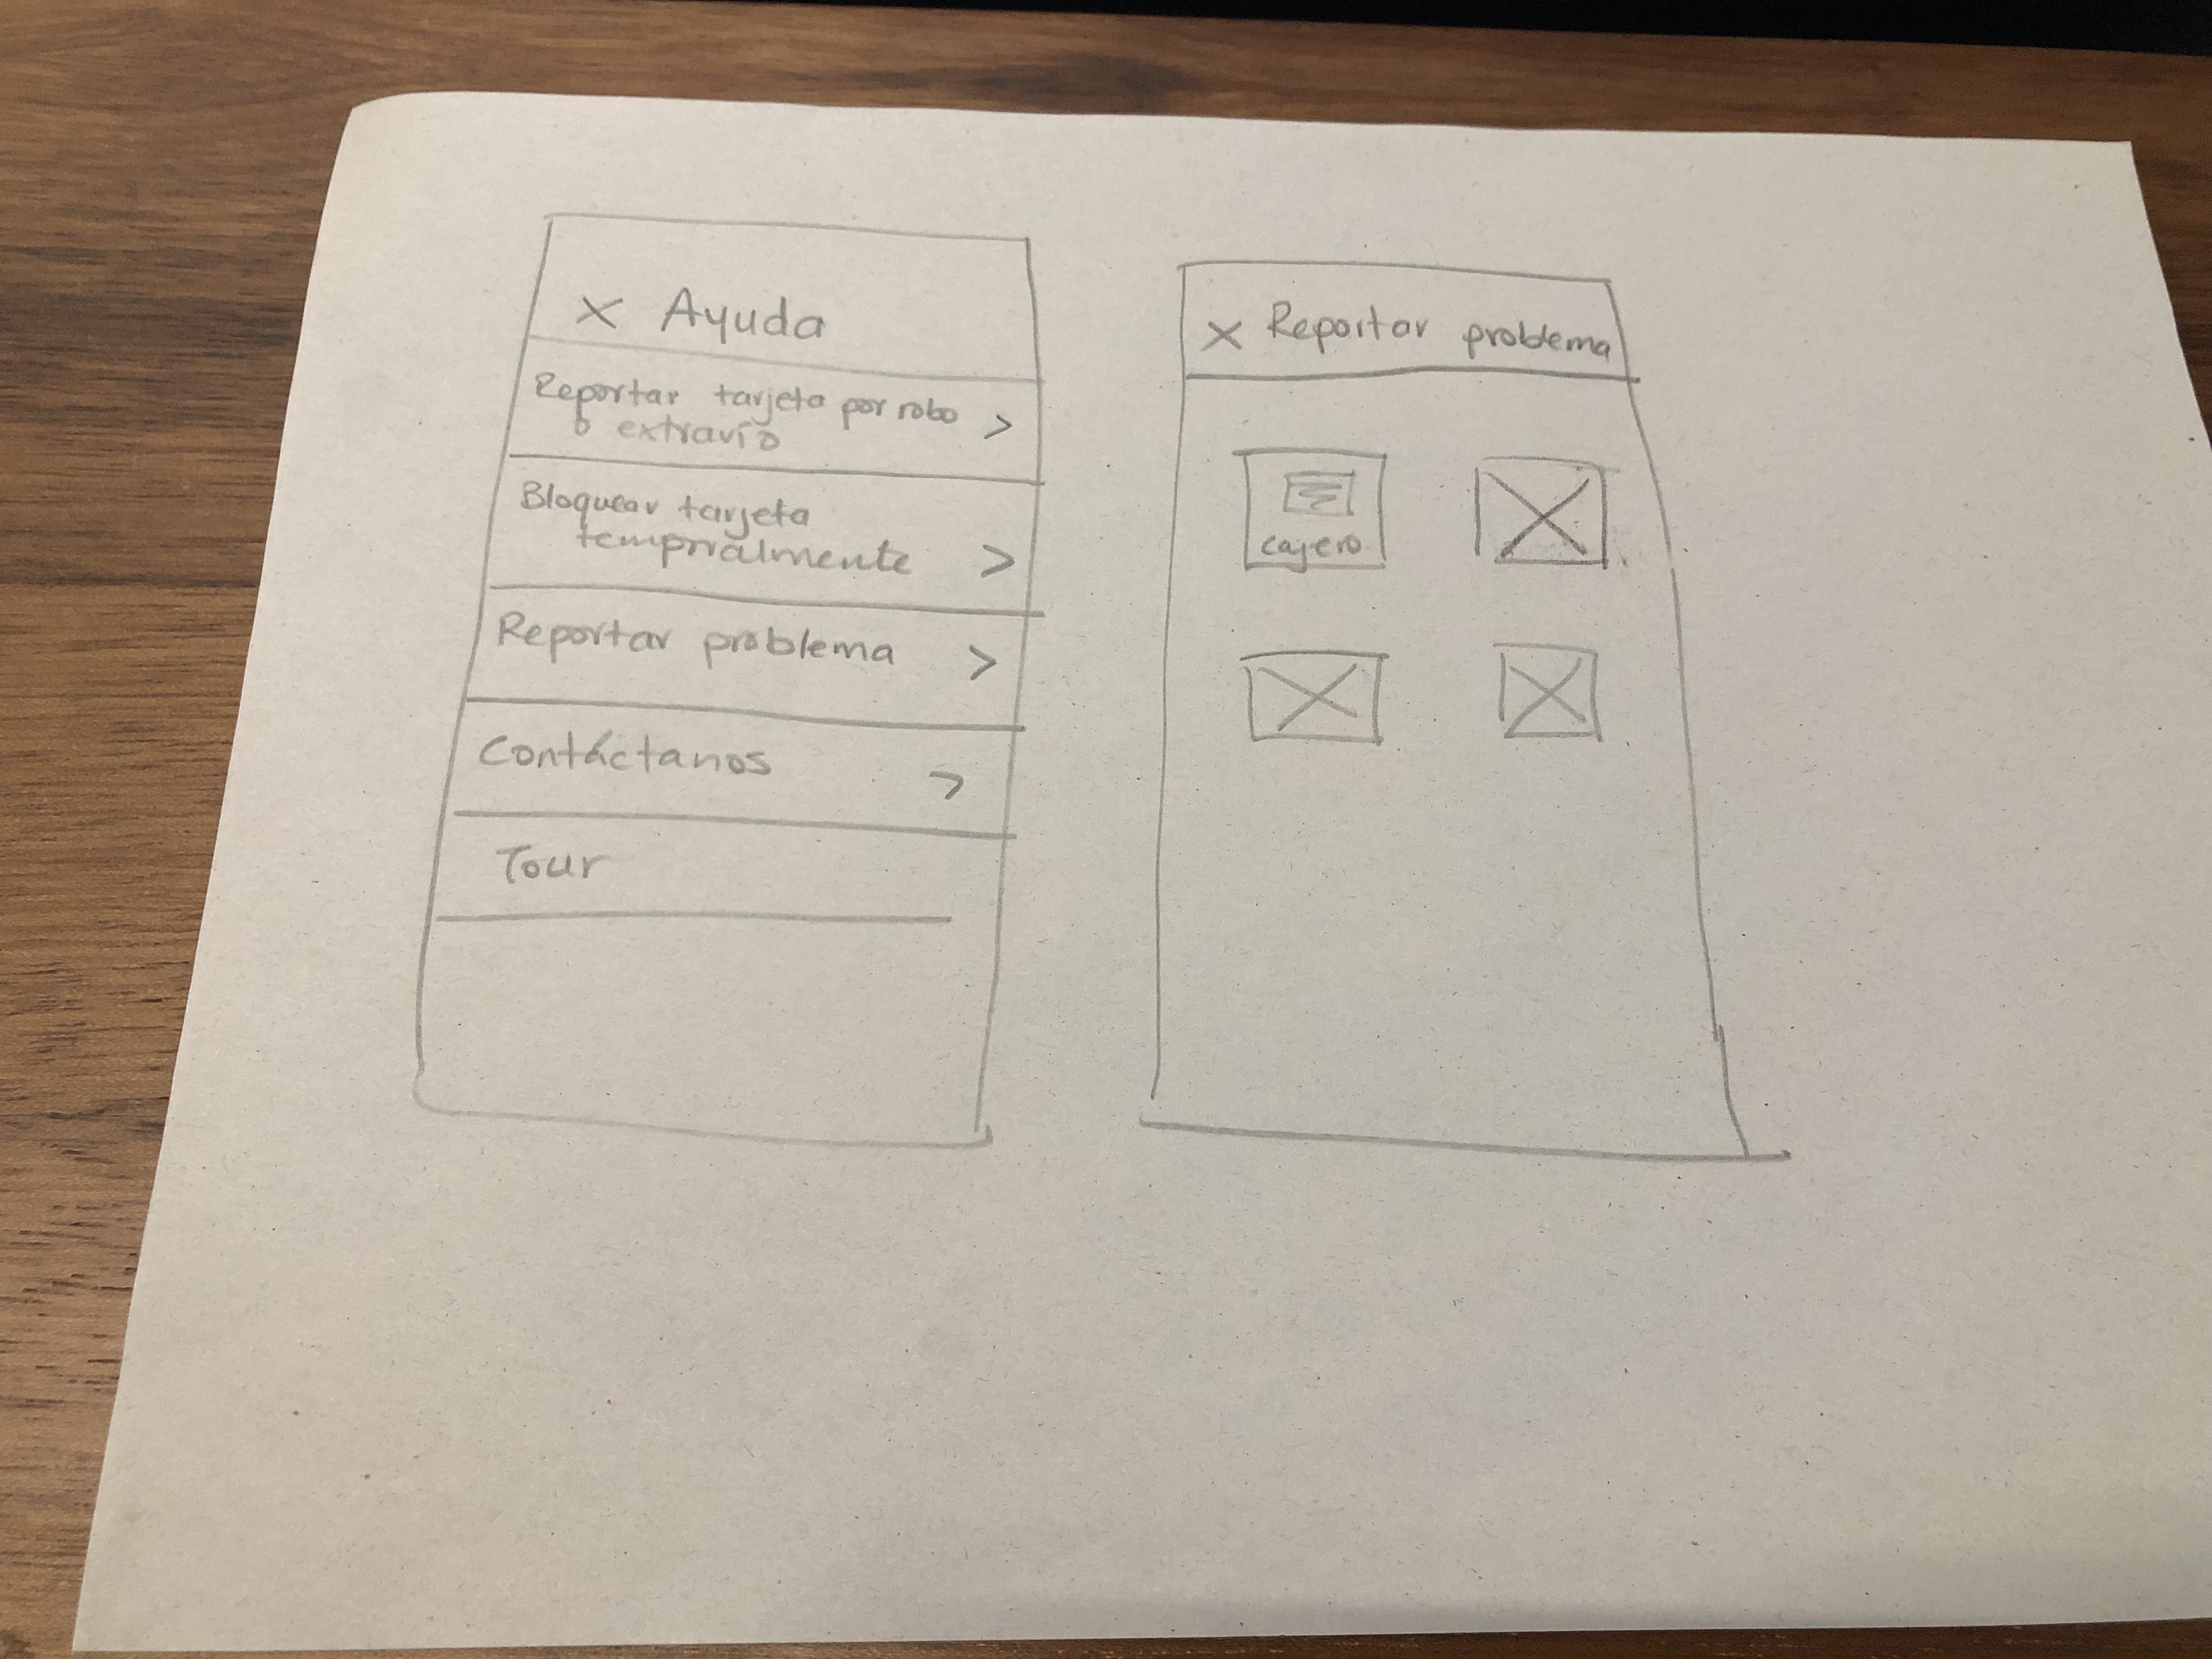 X Ayuda
Reportar tarjeta por robo >
o extravío
Bloquear tarjeta
temprialmente >
Reportar problema >
Contáctanos >
Tour
X Reportar problema
cajero